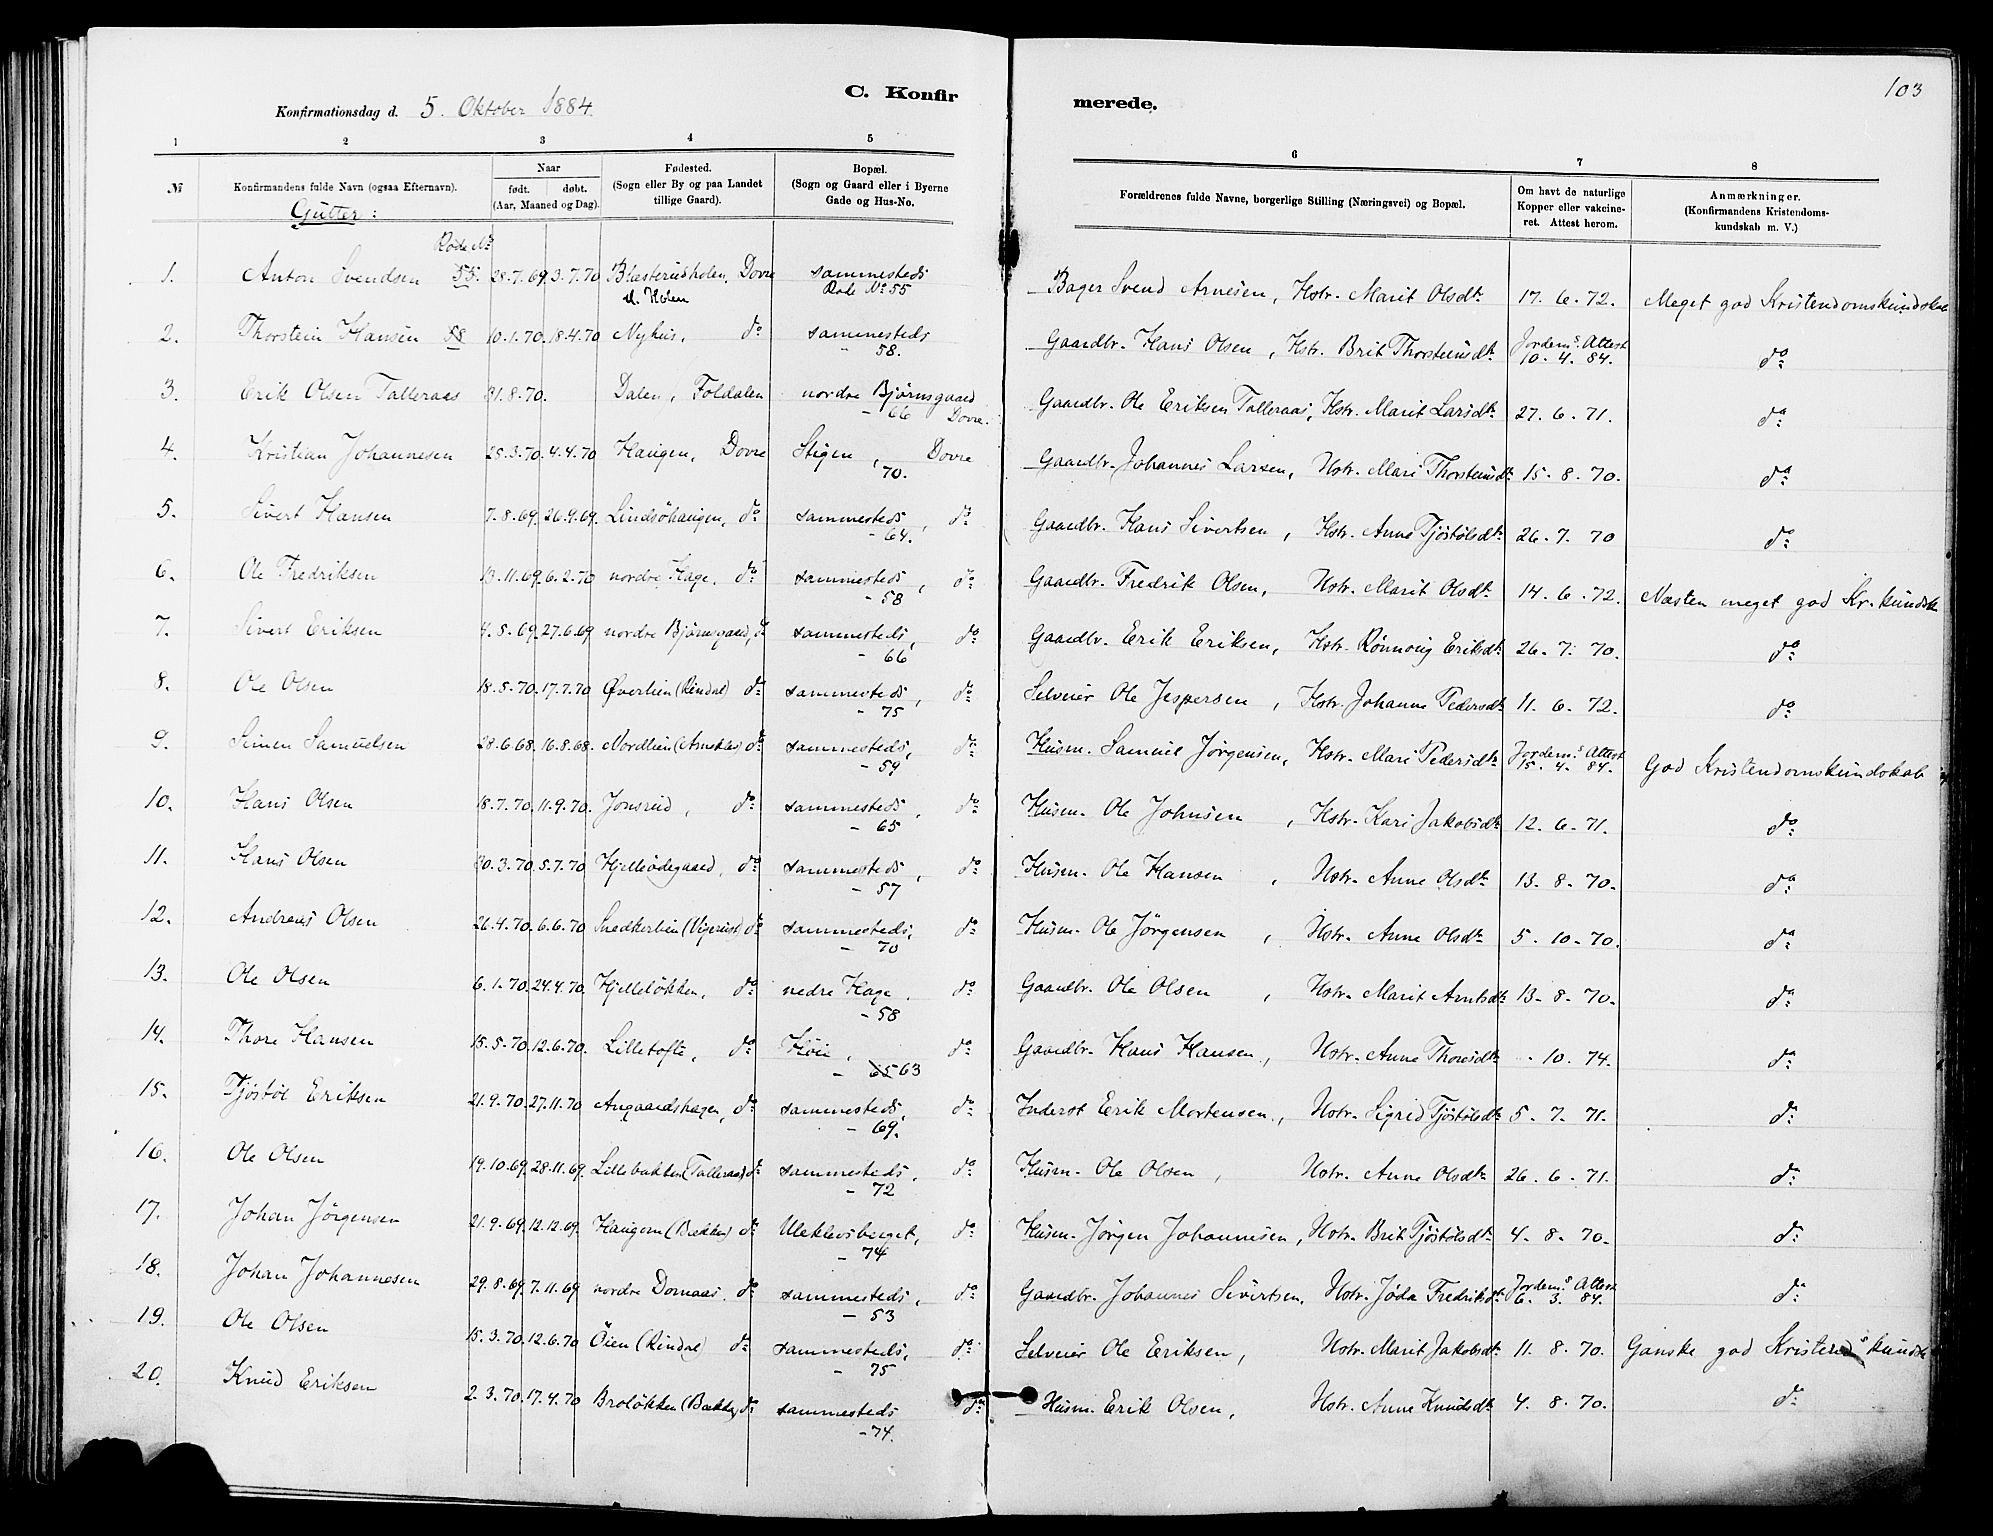 103
C. Konfirmerede.
Konfirmationsdag d. 5. Oktober 1884.
1 2 3 4 5 6 7 8
№ Konfirmandens fulde Navn (ogsaa Efternavn). Naar født. døbt. (Aar, Maaned og Dag). Fødested. (Sogn eller By og paa Landet tillige Gaard). Bopæl. (Sogn og Gaard eller i Byerne Gade og Hus-No. Forældrenes fulde Navne, borgerlige Stilling (Næringsvei) og Bopæl. Om havt de naturlige Kopper eller vakcineret. Attest herom. Anmærkninger. (Konfirmandens Kristendomskundskab m. V.)
Gutter:
Rode №
1. Anton Svendsen 55. 28.7.69 3.7.70 Blæsterudholen, Dovre sammesteds Bager Svend Arnesen, Hstr. Marit Olsdtr 17. 6. 72. Meget god Kristendomskundskab
Rode № 55
2. Thorstein Hansen 58 10.1.70 18.4.70 Nyhus, do sammesteds Gaardbr. Hans Olsen, Hstr. Brit Thorsteinsdtr Jordems Attest 10. 4. 84. do
- 58.
3. Erik Olsen Talleraas 31.8.70. Dalen, Foldalen nordre Bjørnsgaard Gaardbr. Ole Eriksen Talleraas, Hstr. Marit Larsdtr 27. 6. 71. do
- 66 Dovre.
4. Kristian Johannesen 28.3.70 4.4.70 Haugen, Dovre Stigen, Dovre Gaardbr. Johannes Larsen, Hstr. Mari Thorsteinsdtr 15. 8. 70. do
70.
5. Sivert Hansen 7.8.69. 26.9.69. Lindsöhaugen, do sammesteds, do Gaardbr. Hans Sivertsen, Hstr. Anne Tjöstölsdtr 26. 7. 70 do
- 64.
6. Ole Fredriksen 13.11.69 6.2.70 nordre Hage, do sammesteds, do Gaardbr. Fredrik Olsen, Hstr. Marit Olsdtr 14. 6. 72. Næsten meget god Kr.kundsk
- 58
7. Sivert Eriksen 4.5.69 27.6.69 nordre Bjørnsgaard, do sammesteds, do Gaardbr. Erik Eriksen, Hstr. Rønnoug Eriksdtr 26. 7. 70. do
- 66
8. Ole Olsen 18.5.70. 17.7.70 Øverlien (Rindal) do sammesteds, do Selveier Ole Jespersen, Hstr. Johanne Pedersdtr 11. 6. 72. do
- 75
9. Simen Samuelsen 28.6.68. 16.8.68. Nordlien do sammesteds, do Husm. Samuel Jørgensen, Hstr. Mari Pedersdtr Jordems Attest 15. 4. 84. God Kristendomskundskab
- 59
10. Hans Olsen 18.7.70. 11.9.70. Jonsrud, do sammesteds, do Husm. Ole Johnsen, Hstr. Kari Jakobsdtr 12. 6. 71. do
- 65
11. Hans Olsen 30.3.70. 5.7.70 Hjelleödegaard, do sammesteds, do Husm. Ole Hansen, Hstr. Anne Olsdtr 13. 8. 70. do
- 57
12. Andreas Olsen 26.4.70. 6.6.70 Snedkerlien (Vigerust) do sammesteds, do Husm. Ole Jørgensen, Hstr. Anne Olsdtr 5. 10. 70. do
- 70
13. Ole Olsen 6.1.70. 24.4.70. Hjelleløkken, do nedre Hage, do Gaardbr. Ole Olsen, Hstr. Marit Arntsdtr 13. 8. 70. do
- 58
14. Thore Hansen 15.5.70. 12.6.70. Lilletofte, do Høie, do Gaardbr. Hans Hansen, Hstr. Anne Thoresdtr - 10. 74. do
- 65 63
15. Tjöstöl Eriksen 21.9.70. 27.11.70 Angaardshagen, do sammesteds, do Inderst Erik Mortensen, Hstr. Sigrid Tjöstölsdtr 5. 7. 71. do
- 69.
16. Ole Olsen 19.10.69. 28.11.69. Lillebakken (Talleraas) do sammesteds, do Husm. Ole Olsen, Hstr. Anne Olsdtr 26. 6. 71. do
- 72
17. Johan Jørgensen 21.9.69. 12.12.69. Haugen (Bakken) do Ulekleivberget, do Husm. Jørgen Johannesen, Hstr. Brit Tjöstölsdtr 4. 8. 70. do
- 74
18. Johan Johannesen 29.8.69. 7.11.69 nordre Domaas, do sammesteds, do Gaardbr. Johannes Sivertsen, Hstr. Jøda Fredriksdtr Jordems Attest 6. 3. 84. do
- 53
19. Ole Olsen 15.3.70. 12.6.70 Öien (Rindal) do sammesteds, do Selveier Ole Eriksen, Hstr. Marit Jakobsdtr 11. 8. 70. Ganske god Kristends kundsk
- 75
20. Knud Eriksen 2.3.70. 17.4.70 Broløkken (Bakken) do sammesteds do Husm. Erik Olsen, Hstr. Anne Knudsdtr 4. 8. 70. do
- 74.